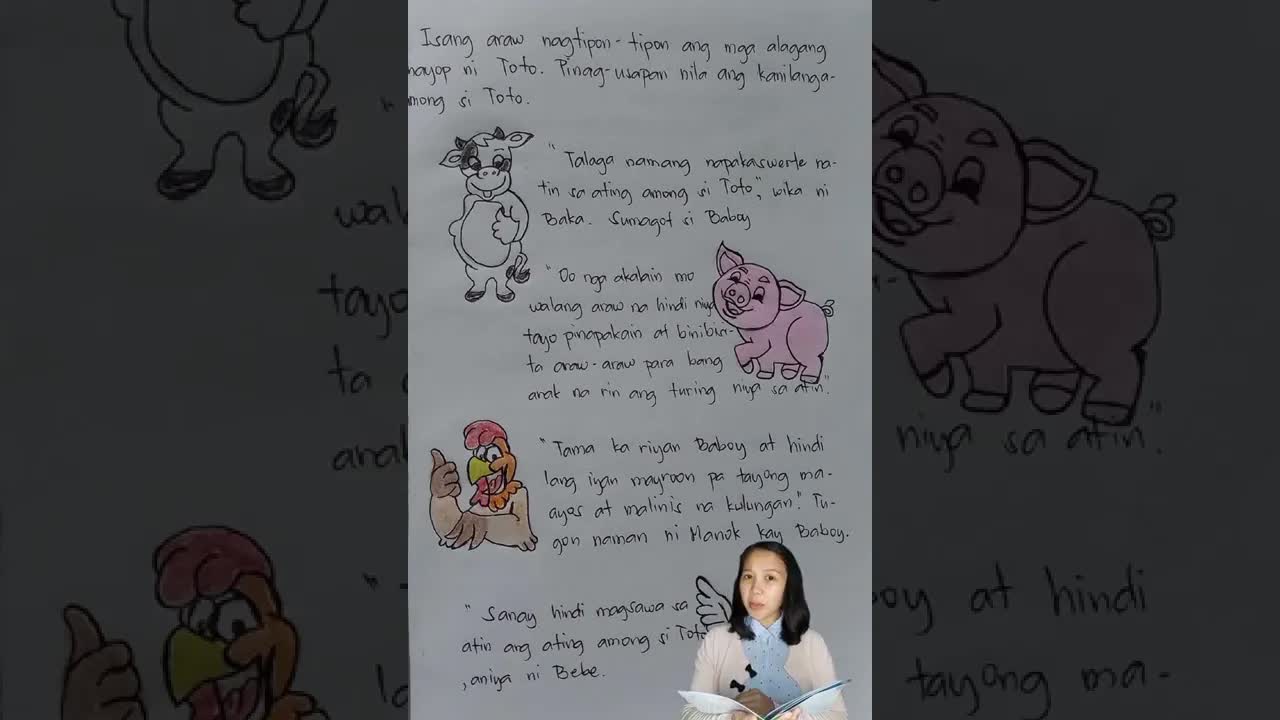 Isang araw nagtipon-tipon ang mga alagang
hayop ni Toto. Pinag-usapan nila ang kanilanga-
mong si Toto.
"Talaga namang napakaswerte na-
tin sa ating among si Toto", wika ni
Baka. Sumagot si Baboy
"Oo nga akalain mo
walang araw na hindi niya
tayo pinapakain at binibisi-
ta araw-araw para bang
anak na rin ang turing niya sa atin."
"Tama ka riyan Baboy at hindi
lang iyan mayroon pa tayong ma-
ayos at malinis na kulungan." Tu-
gon naman ni Manok kay Baboy.
"Sanay hindi magsawa sa
atin ang ating among si Toto
,aniya ni Bebe.